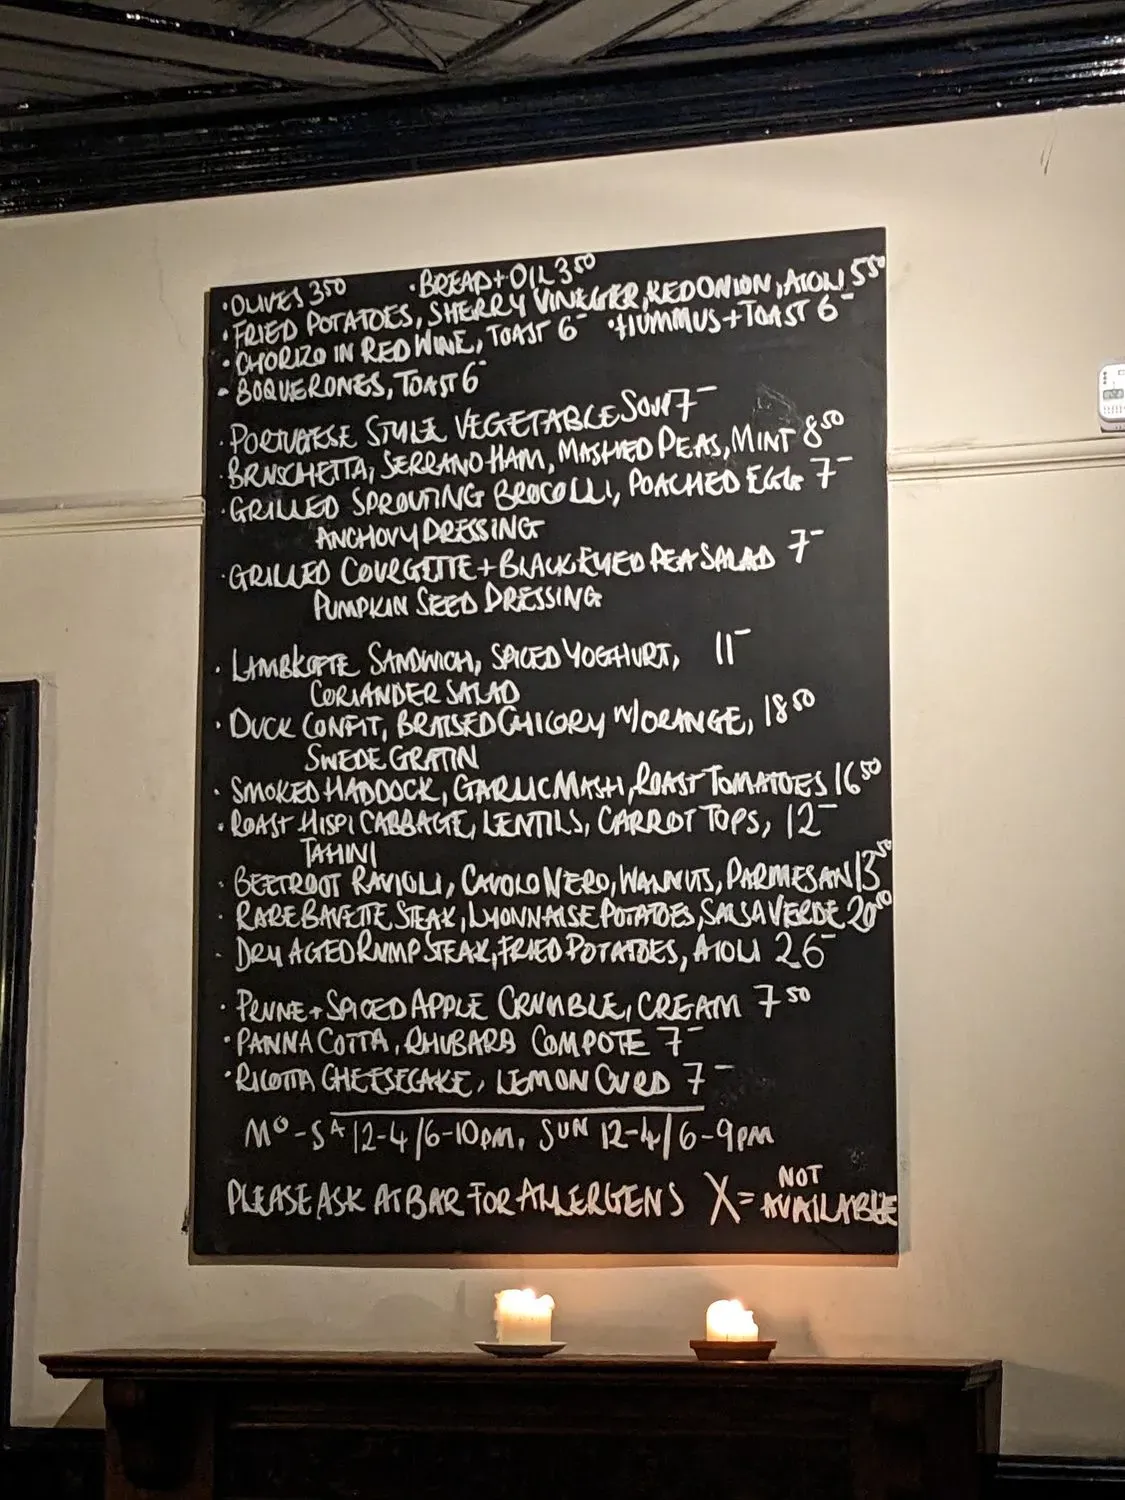 · OLIVES 3⁵⁰ · BREAD + OIL 3⁵⁰
· FRIED POTATOES, SHERRY VINEGER, RED ONION, AIOLI 5⁵⁰
· CHORIZO IN RED WINE, TOAST 6⁻ · HUMMUS + TOAST 6⁻
- BOQUERONES, TOAST 6⁻
· PORTUGESE STYLE VEGETABLE SOUP 7⁻
· BRUSCHETTA, SERRANO HAM, MASHED PEAS, MINT 8⁵⁰
· GRILLED SPROUTING BROCOLLI, POACHED EGG 7⁻
ANCHOVY DRESSING
· GRILLED COURGETTE + BLACK EYED PEA SALAD 7⁻
PUMPKIN SEED DRESSING
· LAMB KOFTE SANDWICH, SPICED YOGHURT, 11⁻
CORIANDER SALAD
· DUCK CONFIT, BRAISED CHICORY W/ORANGE, 18⁵⁰
SWEDE GRATIN
· SMOKED HADDOCK, GARLIC MASH, ROAST TOMATOES 16⁵⁰
· ROAST HISPI CABBAGE, LENTILS, CARROT TOPS, 12⁻
TAHINI
· BEETROOT RAVIOLI, CAVOLO NERO, WALNUTS, PARMESAN 13⁵⁰
· RARE BAVETTE STEAK, LYONNAISE POTATOES, SALSA VERDE 20⁵⁰
- DRY AGED RUMP STEAK, FRIED POTATOES, AIOLI 26⁻
· PENNE + SPICED APPLE CRUMBLE, CREAM 7⁵⁰
· PANNA COTTA, RHUBARB COMPOTE 7⁻
· RICOTTA CHEESECAKE, LEMON CURD 7⁻
MO - SA 12-4/6-10PM, SUN 12-4/6-9PM
PLEASE ASK AT BAR FOR ALLERGENS X = NOT AVAILABLE